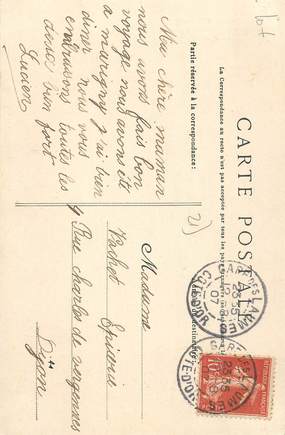 CARTE POSTALE
La Correspondance au recto n'est pas acceptée par tous les pays étrangers
Partie réservée à la correspondance
Ma chère muman
nous avons fais bon
voyage nous avons eté
a marigny j'ai bien
diner nous vous
embrassons toutes les
deux bien fort
Lucien
Madame
Vachet Epicerie
9 Rue charles de vergennes
Dijon
CÔTE-D'OR
CÔTE-D'OR
10